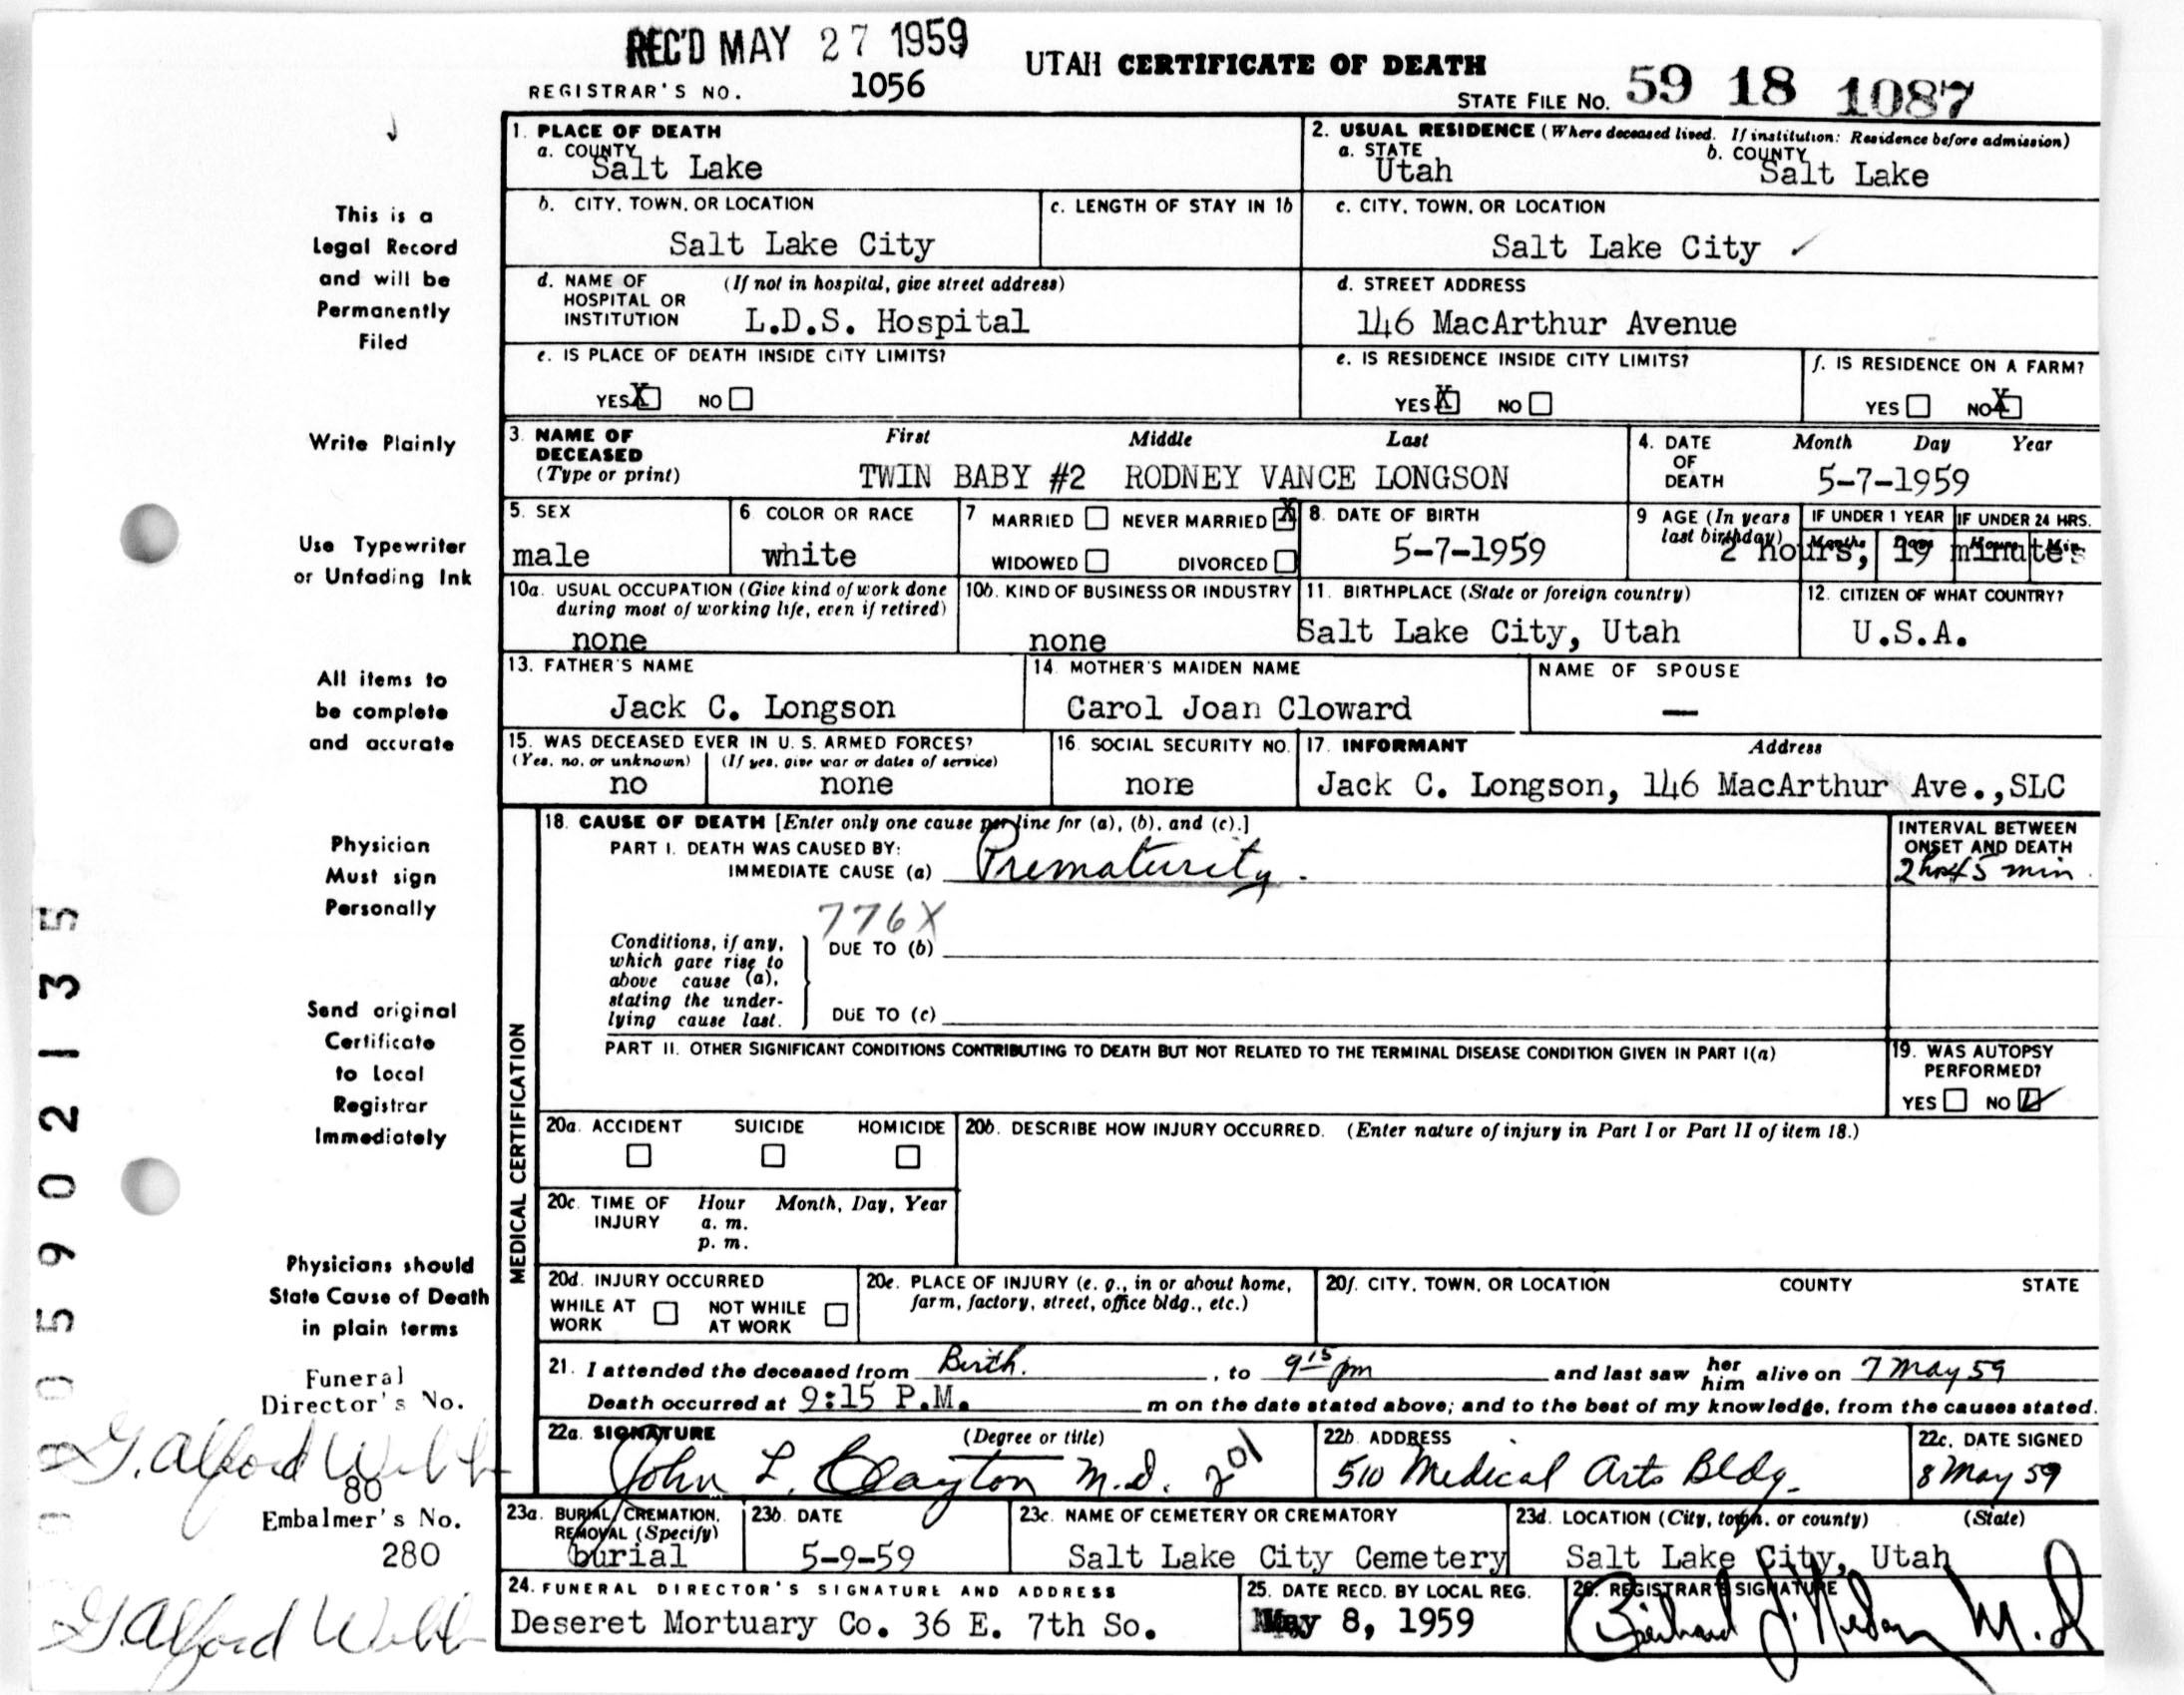 REC'D MAY 27 1959
UTAH CERTIFICATE OF DEATH
REGISTRAR'S NO. 1056
STATE FILE NO. 59 18 1087
This is a
Legal Record
and will be
Permanently
Filed
Write Plainly
Use Typewriter
or Unfading Ink
All items to
be complete
and accurate
Physician
Must sign
Personally
Send original
Certificate
to Local
Registrar
Immediately
Physicians should
State Cause of Death
in plain terms
Funeral
Director's No.
G. Alford Webb
80
Embalmer's No.
280
G. Alford Webb
1. PLACE OF DEATH
a. COUNTY
Salt Lake
2. USUAL RESIDENCE (Where deceased lived. If institution: Residence before admission)
a. STATE b. COUNTY
Utah Salt Lake
b. CITY, TOWN, OR LOCATION
Salt Lake City
c. LENGTH OF STAY IN 1b
c. CITY, TOWN, OR LOCATION
Salt Lake City
d. NAME OF (If not in hospital, give street address)
HOSPITAL OR
INSTITUTION L.D.S. Hospital
d. STREET ADDRESS
146 MacArthur Avenue
e. IS PLACE OF DEATH INSIDE CITY LIMITS?
YES X NO
e. IS RESIDENCE INSIDE CITY LIMITS?
YES X NO
f. IS RESIDENCE ON A FARM?
YES NO X
3. NAME OF First Middle Last
DECEASED
(Type or print) TWIN BABY #2 RODNEY VANCE LONGSON
4. DATE Month Day Year
OF
DEATH 5-7-1959
5. SEX
male
6 COLOR OR RACE
white
7 MARRIED NEVER MARRIED X
WIDOWED DIVORCED
8. DATE OF BIRTH
5-7-1959
9 AGE (In years last birthday) IF UNDER 1 YEAR IF UNDER 24 HRS.
Months Days Hours Min.
2 hours, 19 minutes
10a. USUAL OCCUPATION (Give kind of work done
during most of working life, even if retired)
none
10b. KIND OF BUSINESS OR INDUSTRY
none
11. BIRTHPLACE (State or foreign country)
Salt Lake City, Utah
12. CITIZEN OF WHAT COUNTRY?
U.S.A.
13. FATHER'S NAME
Jack C. Longson
14. MOTHER'S MAIDEN NAME
Carol Joan Cloward
NAME OF SPOUSE
—
15. WAS DECEASED EVER IN U. S. ARMED FORCES?
(Yes, no, or unknown) (If yes, give war or dates of service)
no none
16. SOCIAL SECURITY NO.
nore
17. INFORMANT Address
Jack C. Longson, 146 MacArthur Ave.,SLC
MEDICAL CERTIFICATION
18. CAUSE OF DEATH [Enter only one cause per line for (a), (b), and (c).]
PART I. DEATH WAS CAUSED BY:
IMMEDIATE CAUSE (a) Prematurity.
INTERVAL BETWEEN
ONSET AND DEATH
2 hrs 45 min.
776X
Conditions, if any,
which gave rise to
above cause (a),
stating the under-
lying cause last.
DUE TO (b)
DUE TO (c)
PART II. OTHER SIGNIFICANT CONDITIONS CONTRIBUTING TO DEATH BUT NOT RELATED TO THE TERMINAL DISEASE CONDITION GIVEN IN PART I(a)
19. WAS AUTOPSY
PERFORMED?
YES NO
20a. ACCIDENT SUICIDE HOMICIDE
20b. DESCRIBE HOW INJURY OCCURRED. (Enter nature of injury in Part I or Part II of item 18.)
20c. TIME OF Hour Month, Day, Year
INJURY a. m.
p. m.
20d. INJURY OCCURRED
WHILE AT WORK NOT WHILE AT WORK
20e. PLACE OF INJURY (e. g., in or about home,
farm, factory, street, office bldg., etc.)
20f. CITY, TOWN, OR LOCATION COUNTY STATE
21. I attended the deceased from Birth. , to 9 15 pm and last saw her him alive on 7 May 59
Death occurred at 9:15 P.M. m on the date stated above; and to the best of my knowledge, from the causes stated.
22a. SIGNATURE (Degree or title)
John L. Clayton M.D. 201
22b. ADDRESS
510 Medical Arts Bldg.
22c. DATE SIGNED
8 May 59
23a. BURIAL, CREMATION,
REMOVAL (Specify)
burial
23b. DATE
5-9-59
23c. NAME OF CEMETERY OR CREMATORY
Salt Lake City Cemetery
23d. LOCATION (City, town, or county) (State)
Salt Lake City, Utah
24. FUNERAL DIRECTOR'S SIGNATURE AND ADDRESS
Deseret Mortuary Co. 36 E. 7th So.
25. DATE RECD. BY LOCAL REG.
May 8, 1959
26. REGISTRAR'S SIGNATURE
M.D